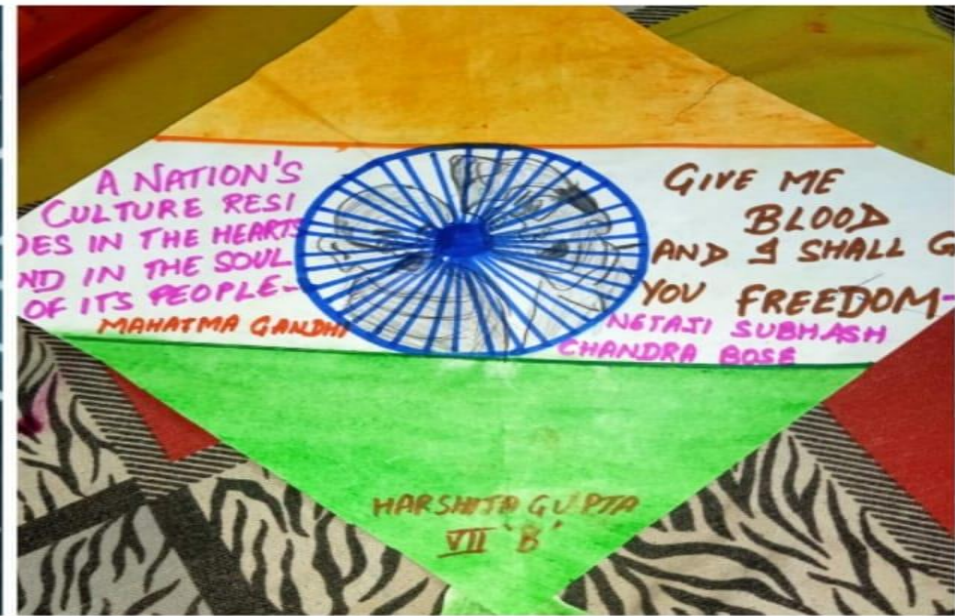 A NATION'S
CULTURE RESI
DES IN THE HEARTS
ND IN THE SOUL
OF ITS PEOPLE-
MAHATMA GANDHI
GIVE ME
BLOOD
AND I SHALL G
YOU FREEDOM-
NETAJI SUBHASH
CHANDRA BOSE
HARSHITA GUPTA
VII 'B'